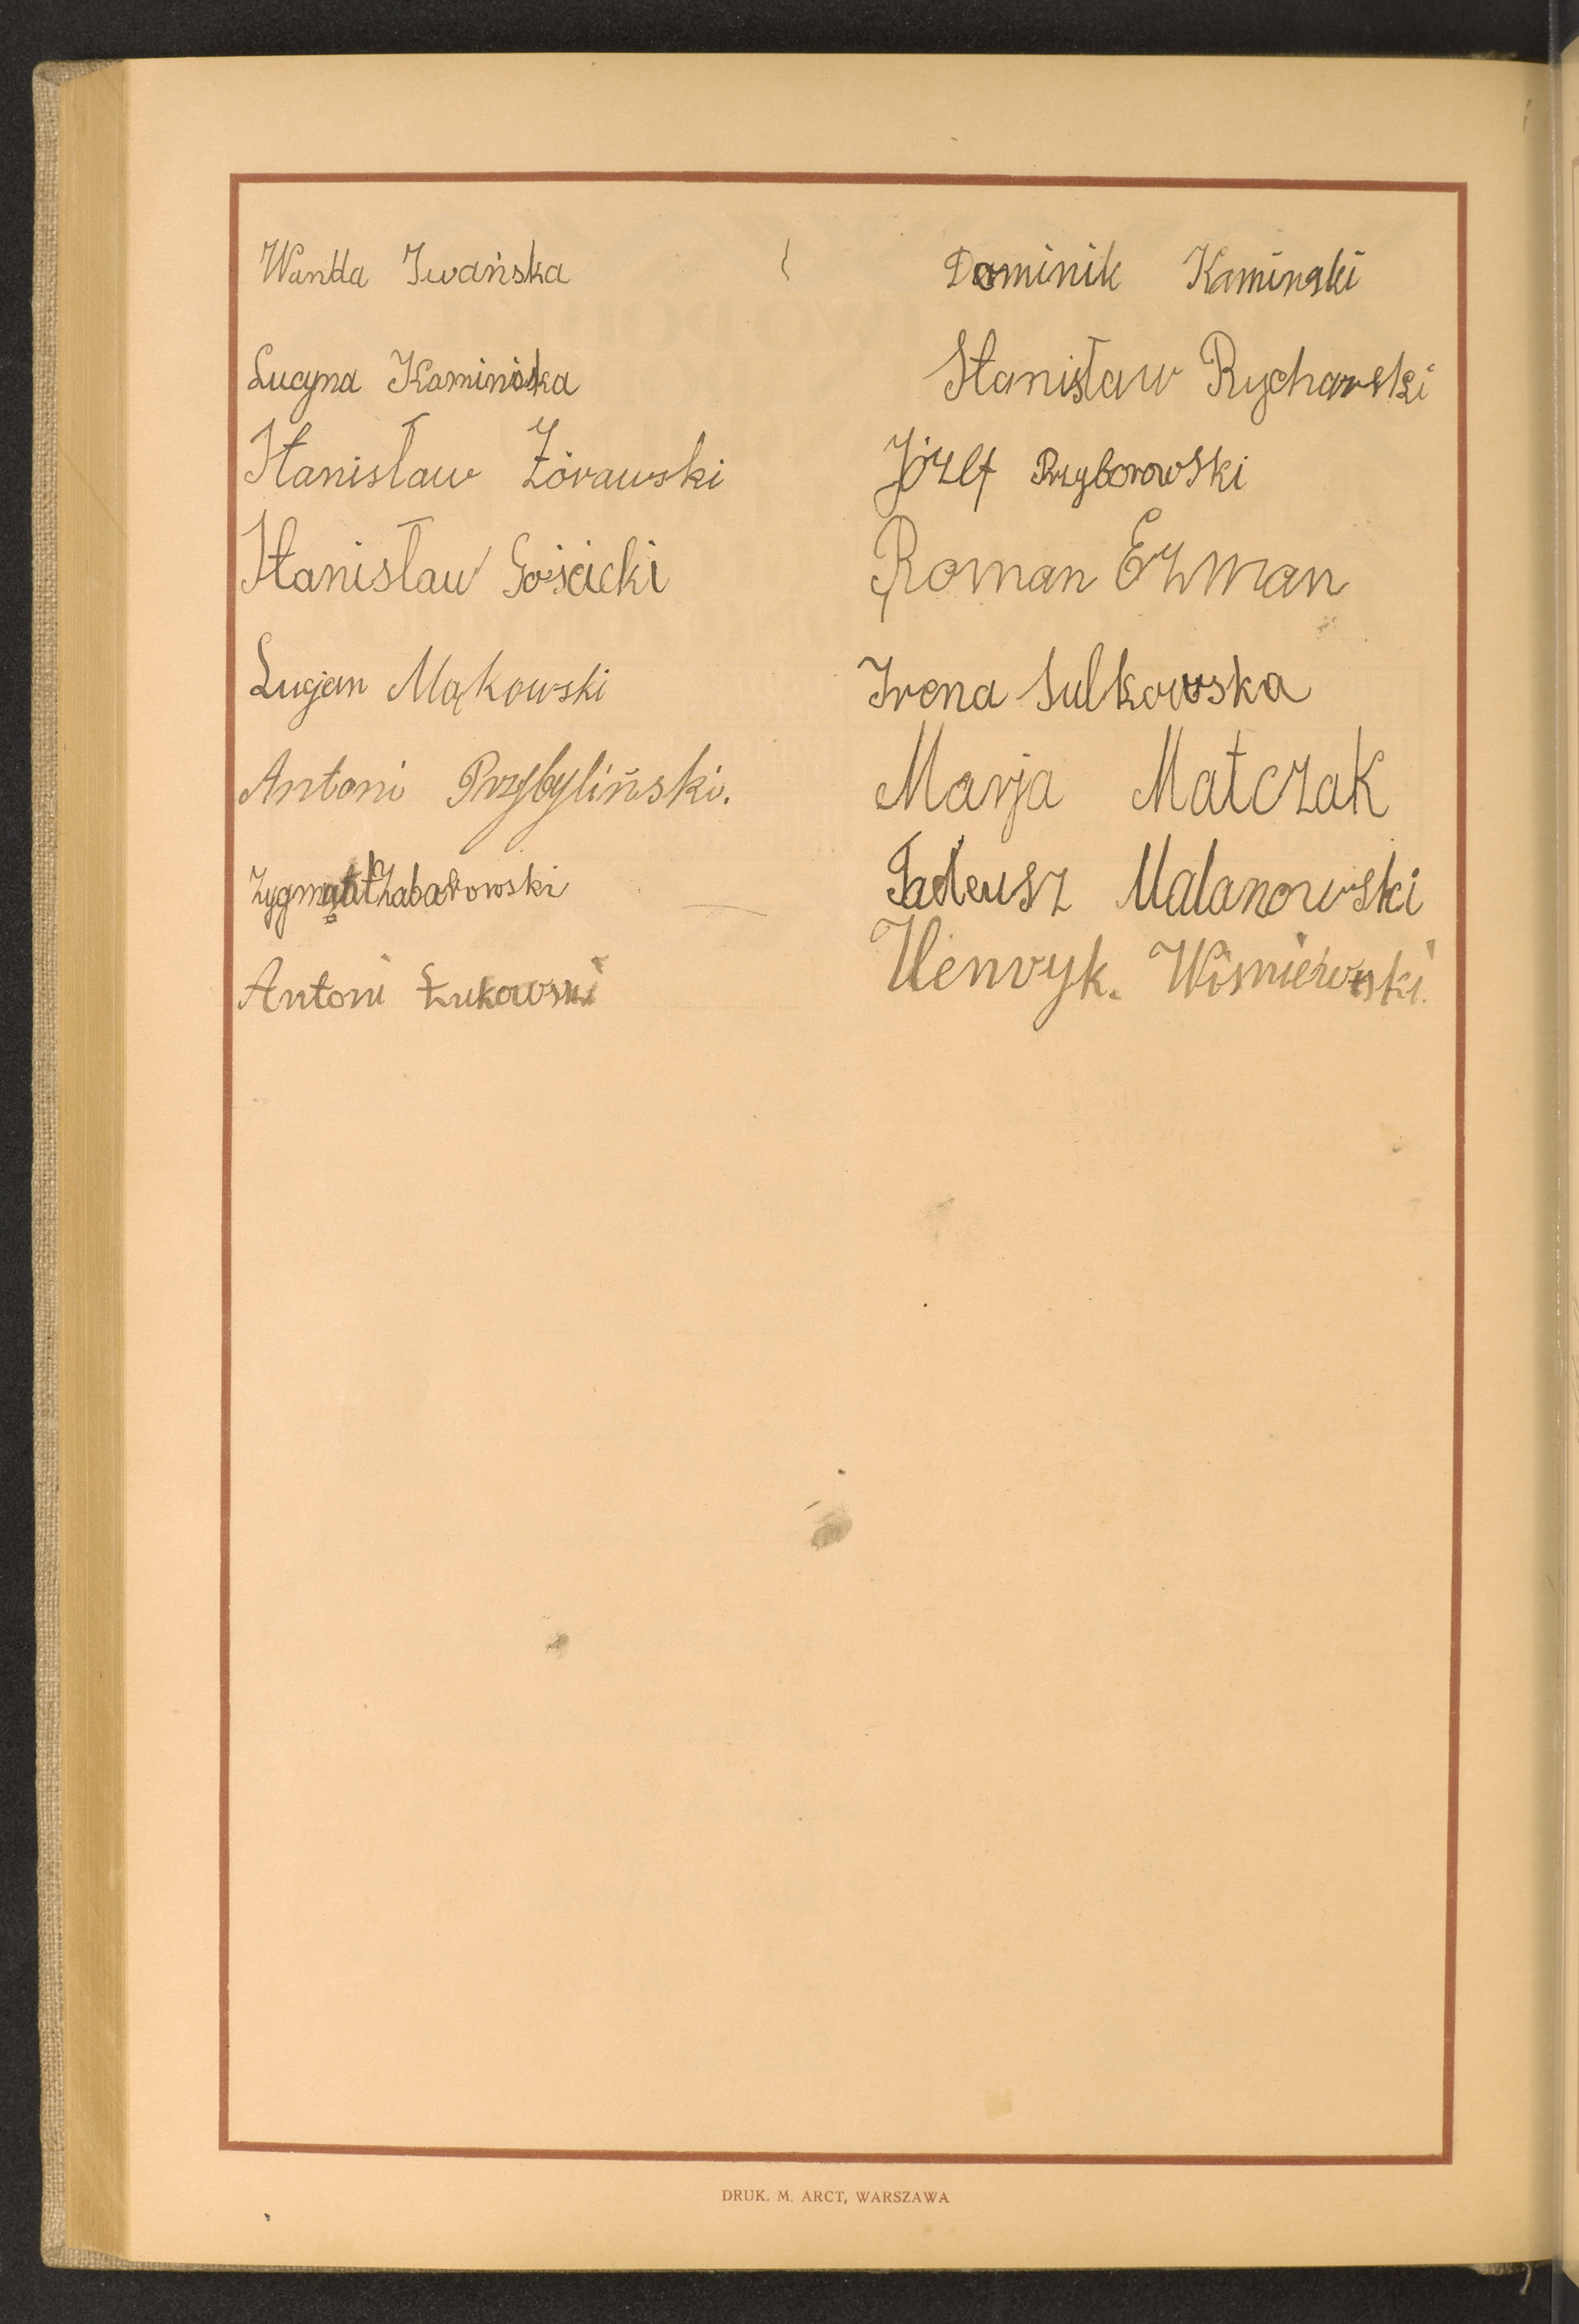 Wanda Iwańska
Lucyna Kamińska
Stanisław Żórawski
Stanisław Gościcki
Lucjan Mąkowski
Antoni Przybyliński.
Zygmunt Żabakowski
Antoni Łukowski
Dominik Kaminski
Stanisław Rycharski
Józef Przyborowski
Roman Erman
Irena Sulkowska
Marja Matczak
Tadeusz Malanowski
Henryk. Wiśniewski.
DRUK. M. ARCT, WARSZAWA